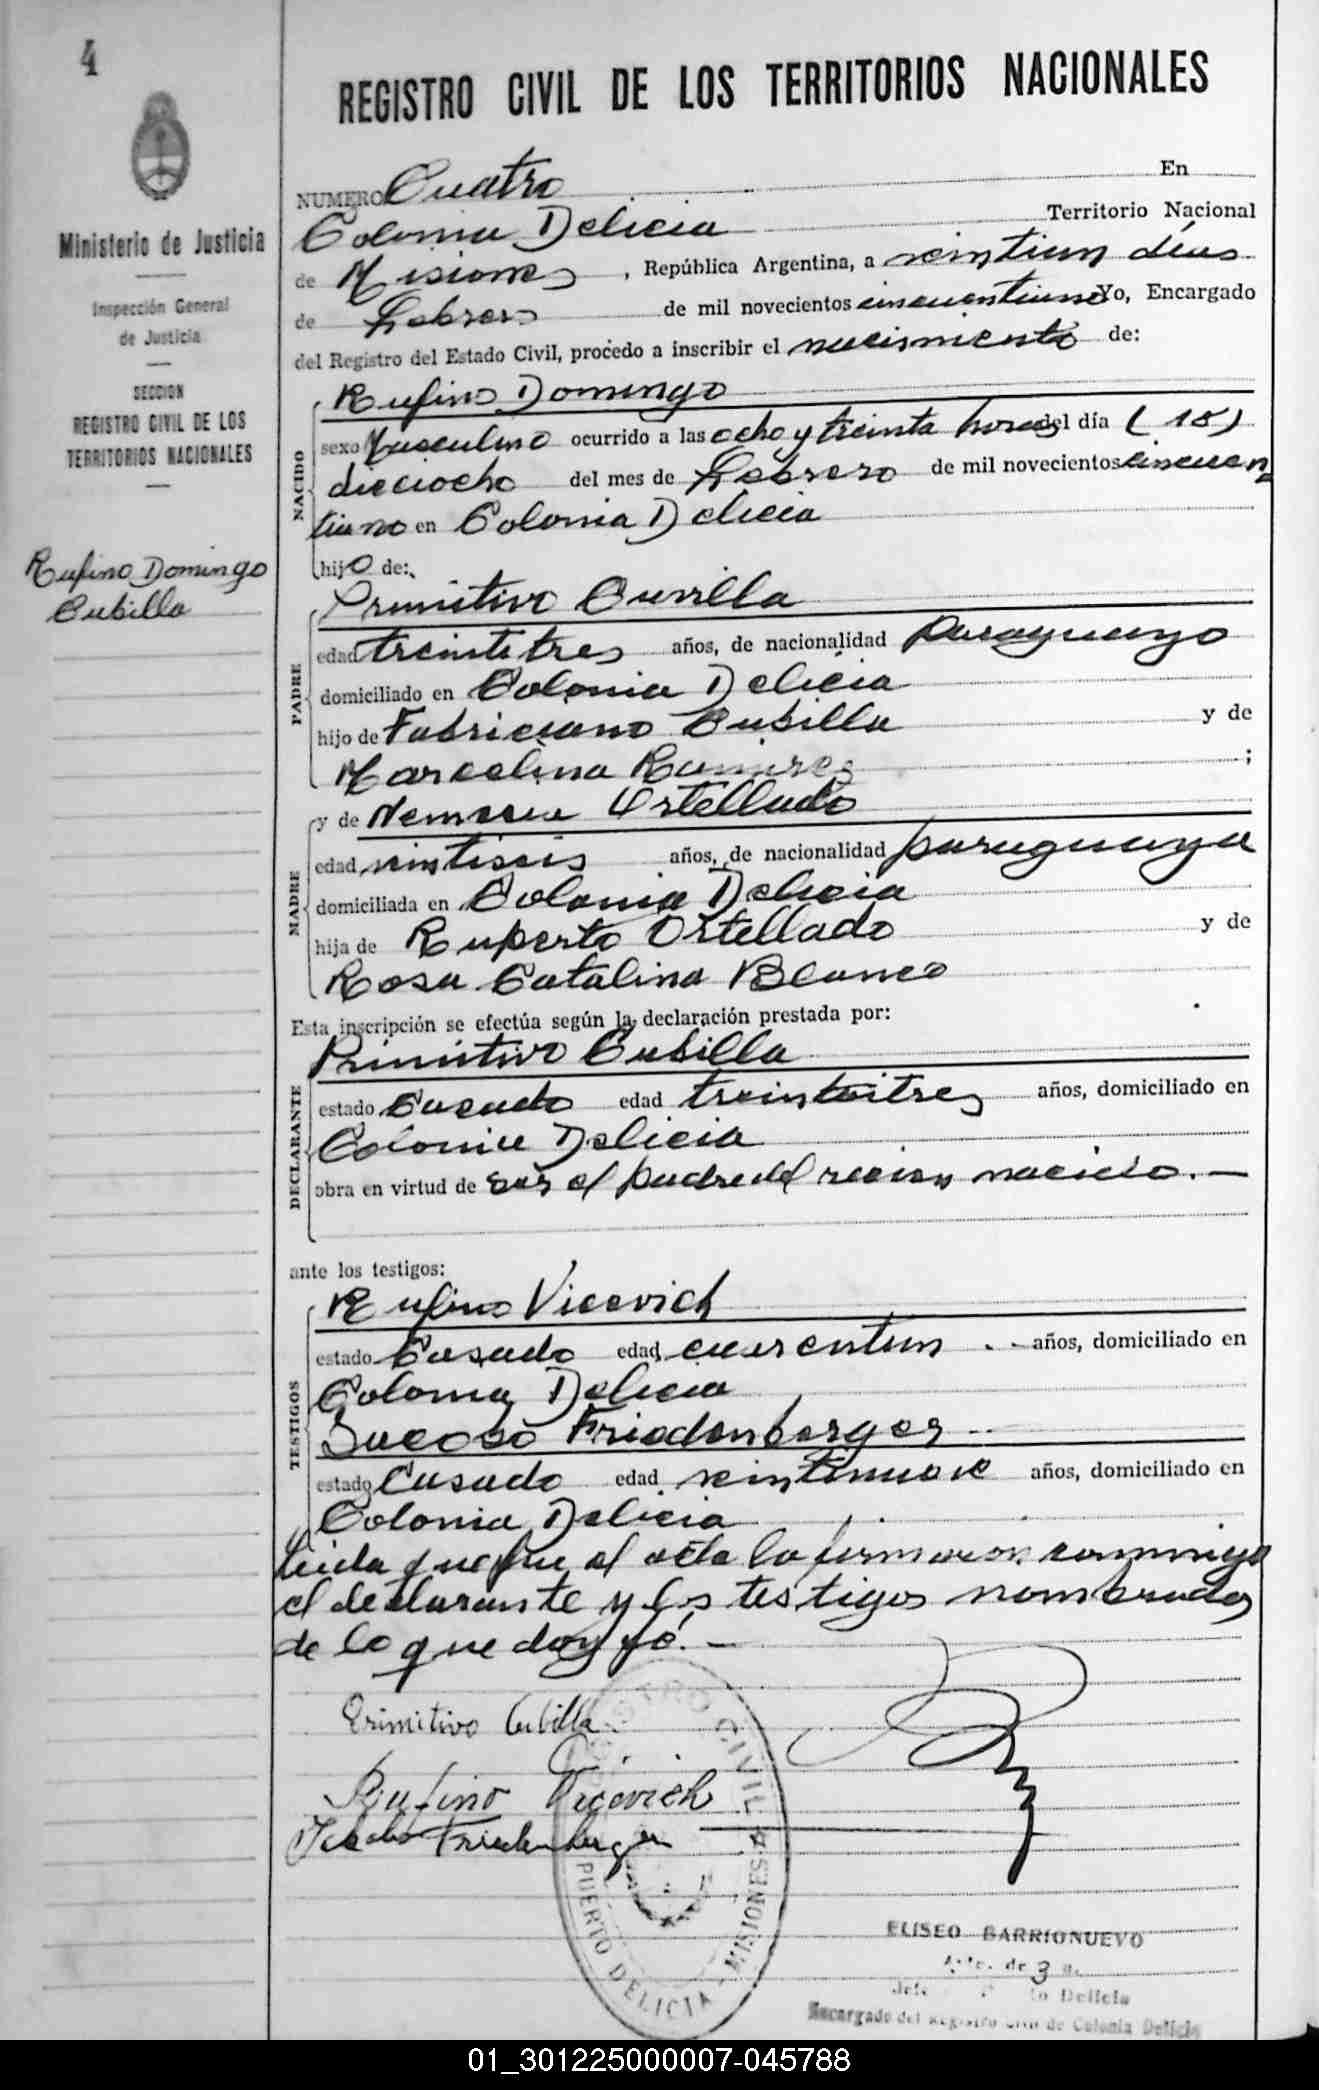 4
REGISTRO CIVIL DE LOS TERRITORIOS NACIONALES
Ministerio de Justicia
Inspección General
de Justicia
SECCION
REGISTRO CIVIL DE LOS
TERRITORIOS NACIONALES
Rufino Domingo
Cubilla
NUMERO Cuatro En
Colonia Delicia Territorio Nacional
de Misiones, República Argentina, a veintiun dias
de Febrero de mil novecientos cincuentiuno Yo, Encargado
del Registro del Estado Civil, procedo a inscribir el nacimiento de:
NACIDO
Rufino Domingo
sexo Masculino ocurrido a las ocho y treinta horas del día (18)
dieciocho del mes de Febrero de mil novecientos cincuen
tiuno en Colonia Delicia
hijo de:
PADRE
Primitivo Cuvilla
edad treintitres años, de nacionalidad paraguayo
domiciliado en Colonia Delicia
hijo de Fabriciano Cubilla y de
Marcelina Ramires ;
MADRE
y de Nemecia Ortellado
edad vintiseis años, de nacionalidad paraguaya
domiciliada en Colonia Delicia
hija de Ruperto Ortellado y de
Rosa Catalina Blanco
Esta inscripción se efectúa según la declaración prestada por:
DECLARANTE
Primitivo Cubilla
estado Casado edad treintaitres años, domiciliado en
Colonia Delicia
obra en virtud de ser el padre del recien nacido.—
ante los testigos:
TESTIGOS
Rufino Vicovich
estado Casado edad cuarentun años, domiciliado en
Colonia Delicia
Jacobo Friedenberger
estado Casado edad veintinueve años, domiciliado en
Colonia Delicia
Leida que fue el acta la firmaron conmmigo
el declarante y los testigos nombrados
de lo que doy fé.—
Primitivo Cubilla
Rufino Vicovich
Jakobo Friedenberger
REGISTRO CIVIL
PUERTO DELICIA - MISIONES
ELISEO BARRIONUEVO
de 3
Delicia
Encargado del Registro Civil de Colonia Delicia
01_301225000007-045788